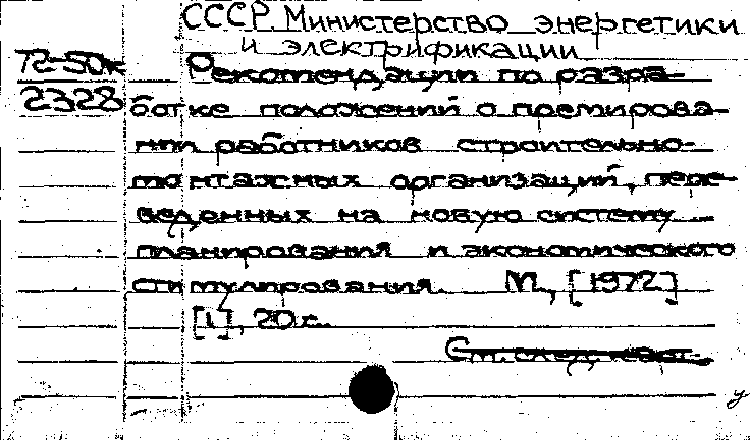 СССР. Министерство энергетики
и электрификации
Г2-50к Рекомендации по разра-
2328 ботке положений о премирова-
нии работников строительно-
монтажных организаций, пере-
веденных на новую систему
планирования и экономического
стимулирования. М., [1972]
[1], 20 с.
См. след. карт.
у